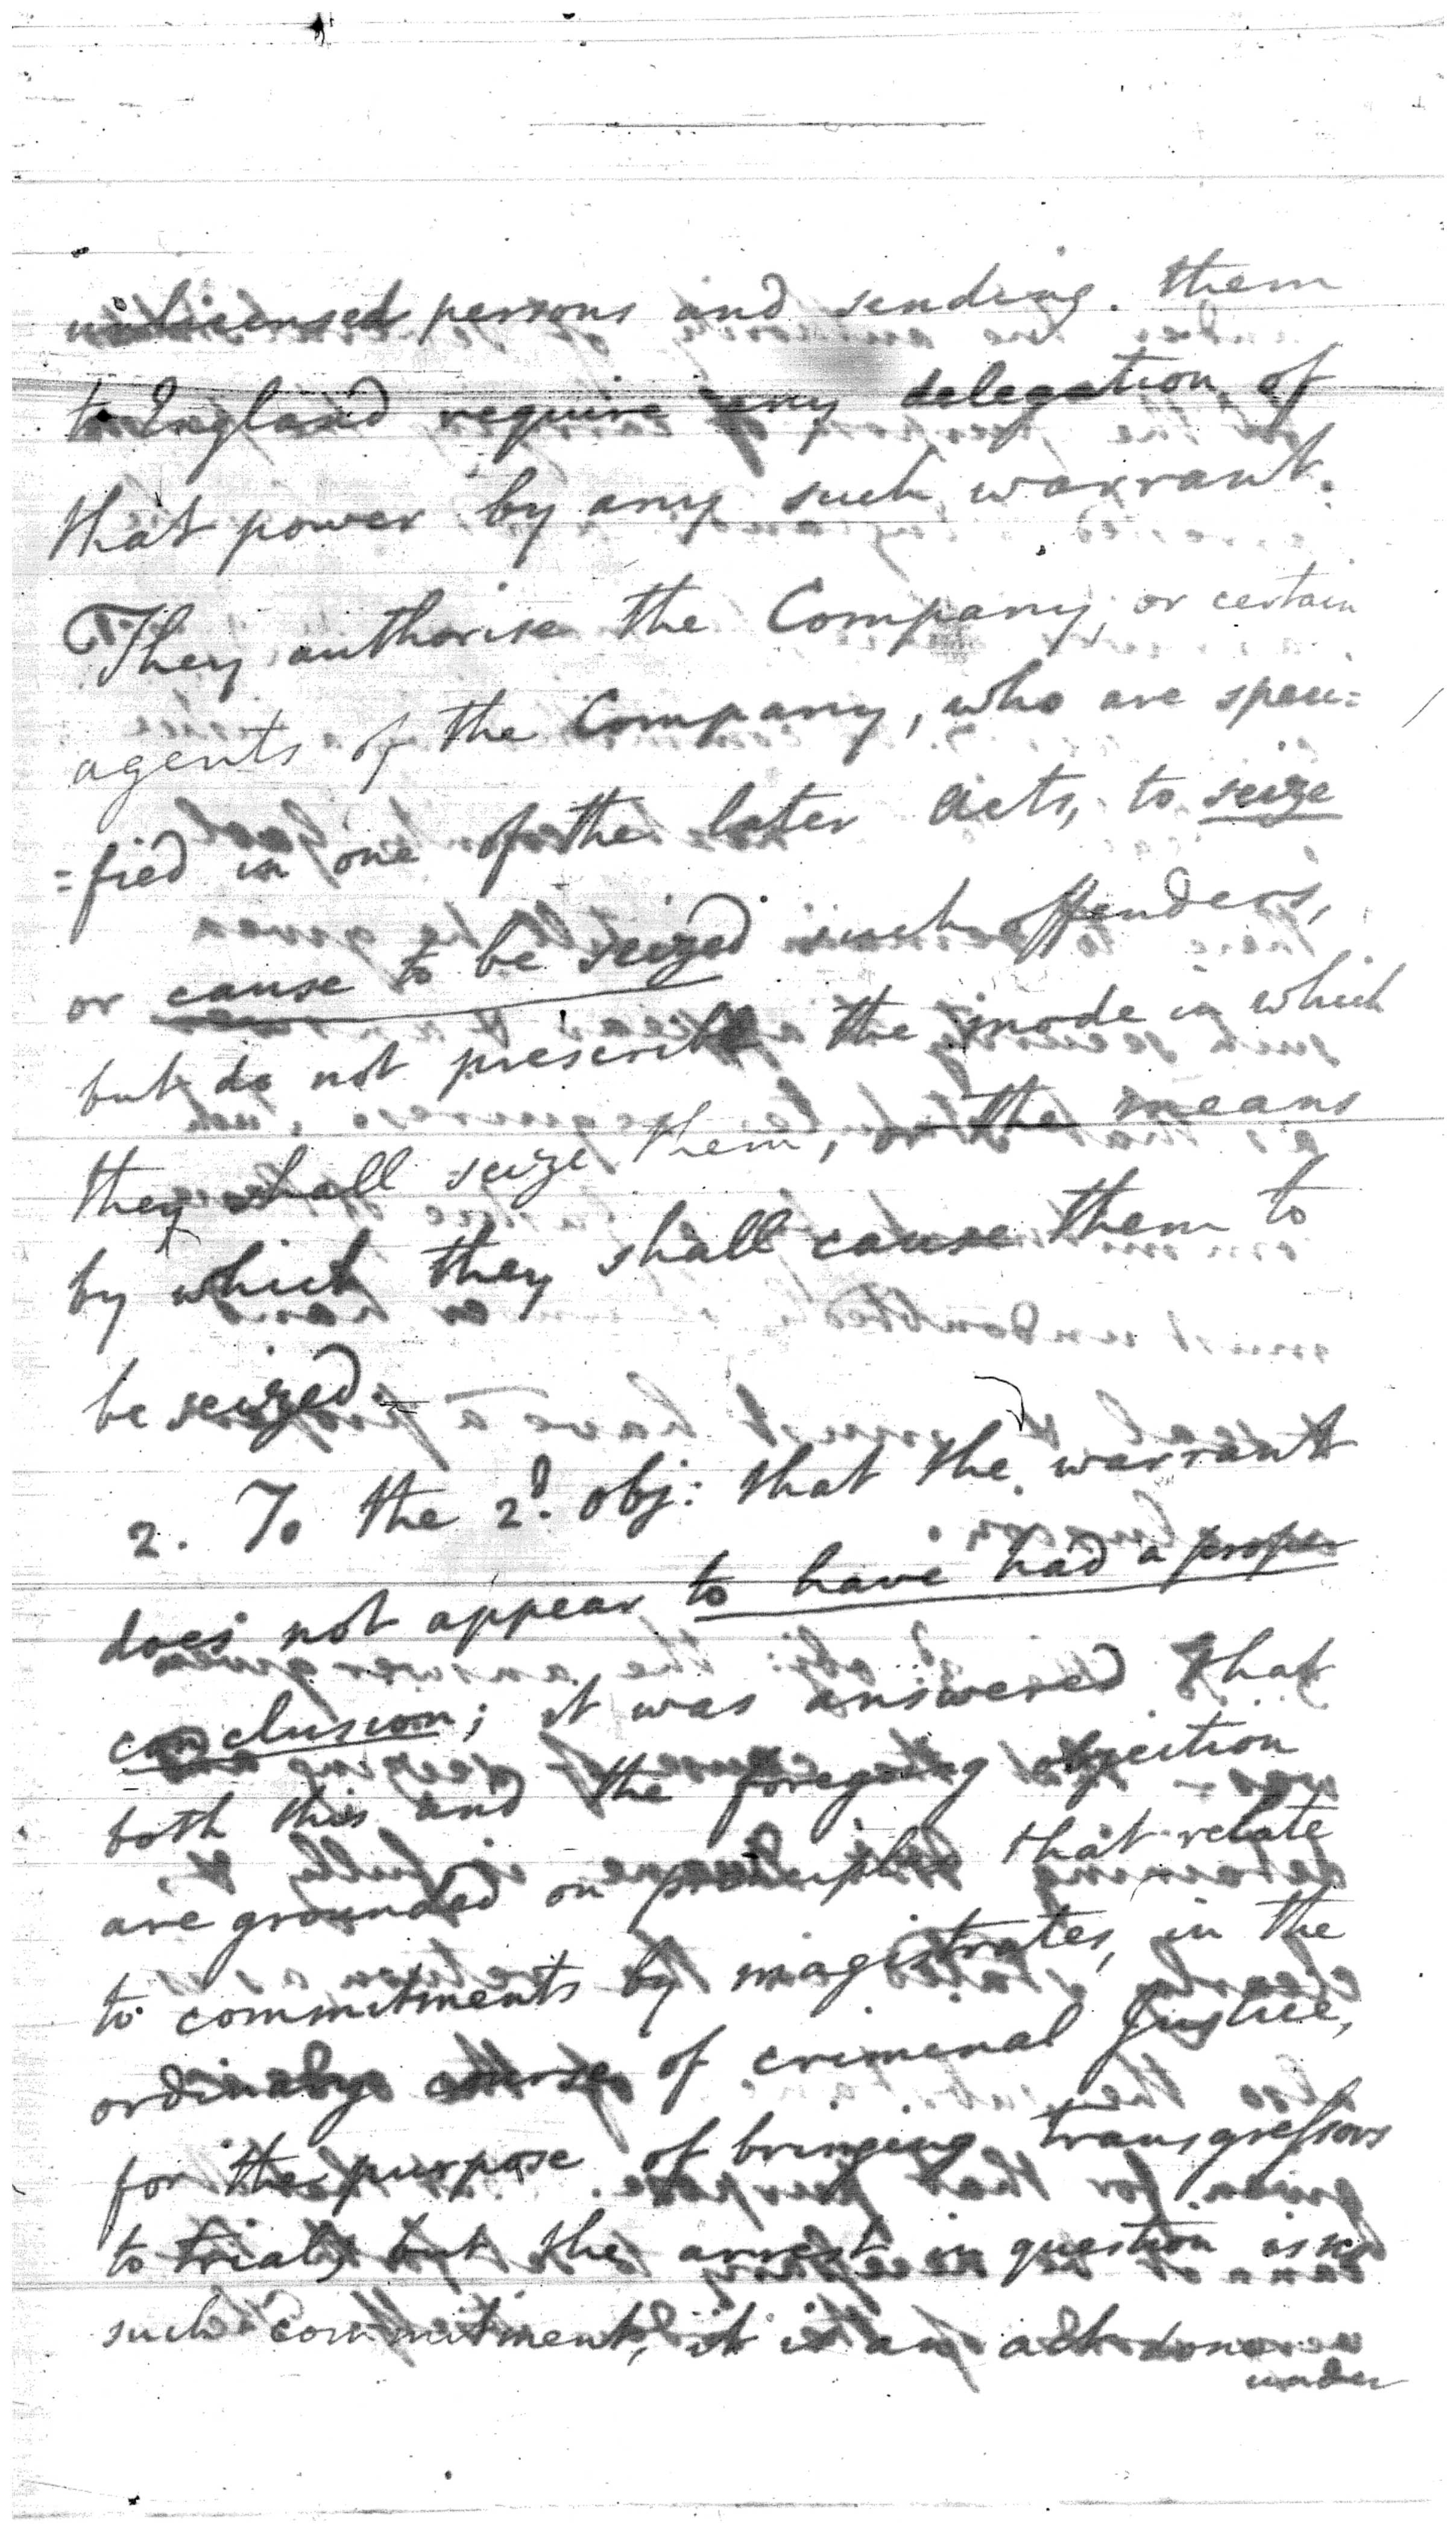 unlicensed persons and sending. them
to England require any delegation of
that power by any such warrant.
They authorise the Company, or certain
agents of the Company, who are speci=
=fied in one of the later Acts, to seize
or cause to be seized such offenders,
but do not prescribe the mode in which
they shall seize them, or the means
by which they shall cause them to
be seized.
2. To the 2d. obj: that the warrant
does not appear to have had a proper
conclusion; it was answered that
both this and the foregoing objection
are grounded on principles that relate
to commitments by magistrates, in the
ordinary course of criminal Justice,
for the purpose of bringing transgressors
to trial; but the arrest in question is no
such commitment, it is an act done
under